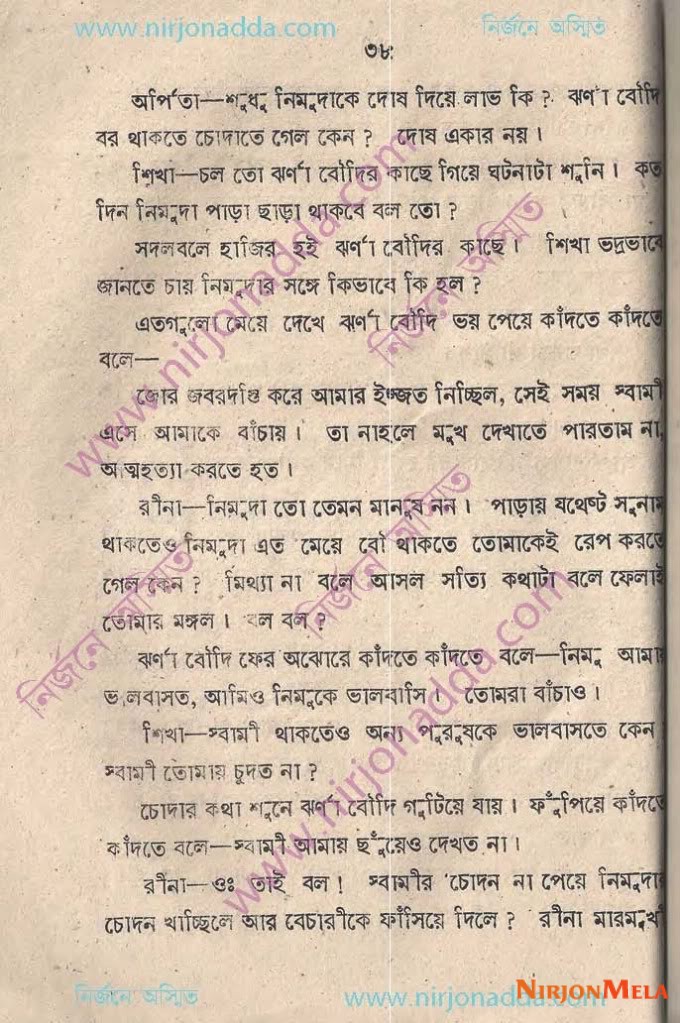 www.nirjonadda.com নির্জনে অস্মিত
৩৮
অর্পিতা—শুধু নিমুদাকে দোষ দিয়ে লাভ কি ? ঝর্ণা বৌদি
বর থাকতে চোদাতে গেল কেন ? দোষ একার নয় ।
শিখা—চল তো ঝর্ণা বৌদির কাছে গিয়ে ঘটনাটা শুনি । কত
দিন নিমুদা পাড়া ছাড়া থাকবে বল তো ?
সদলবলে হাজির হই ঝর্ণা বৌদির কাছে । শিখা ভদ্রভাবে
জানতে চায় নিমুদার সঙ্গে কিভাবে কি হল ?
এতগুলো মেয়ে দেখে ঝর্ণা বৌদি ভয় পেয়ে কাঁদতে কাঁদতে
বলে—
জোর জবরদস্তি করে আমার ইজ্জত নিচ্ছিল, সেই সময় স্বামী
এসে আমাকে বাঁচায় । তা নাহলে মুখ দেখাতে পারতাম না,
আত্মহত্যা করতে হত ।
রীনা—নিমুদা তো তেমন মানুষ নন । পাড়ায় যথেষ্ট সুনাম
থাকতেও নিমুদা এত মেয়ে বৌ থাকতে তোমাকেই রেপ করতে
গেল কেন ? মিথ্যা না বলে আসল সত্যি কথাটা বলে ফেলাই
তোমার মঙ্গল । বল বল ?
ঝর্ণা বৌদি ফের অঝোরে কাঁদতে কাঁদতে বলে—নিমু আমায়
ভালবাসত, আমিও নিমুকে ভালবাসি । তোমরা বাঁচাও ।
শিখা—স্বামী থাকতেও অন্য পুরুষকে ভালবাসতে কেন
স্বামী তোমায় চুদত না ?
চোদার কথা শুনে ঝর্ণা বৌদি গুটিয়ে যায় । ফুঁপিয়ে কাঁদতে
কাঁদতে বলে—স্বামী আমায় ছুঁয়েও দেখত না ।
রীনা—ওঃ তাই বল ! স্বামীর চোদন না পেয়ে নিমুদার
চোদন খাচ্ছিলে আর বেচারীকে ফাঁসিয়ে দিলে ? রীনা মারমুখী
www.nirjonadda.com
নির্জনে অস্মিত
নির্জনে অস্মিত
নির্জনে অস্মিত
www.nirjonadda.com
নির্জনে অস্মিত www.nirjonadda.com
NIRJONMELA